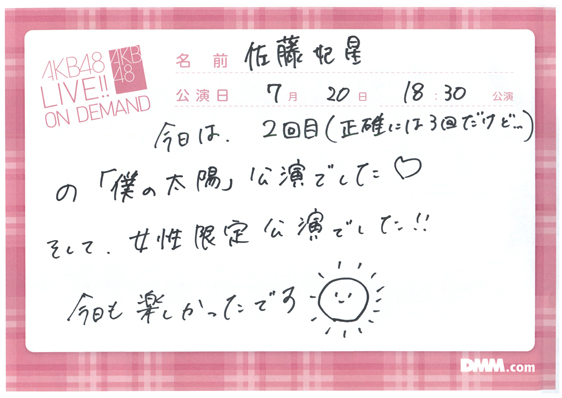 AKB48
LIVE!!
ON DEMAND
AKB
48
名前 佐藤妃星
公演日 7月 20日 18:30 公演
今日は、2回目(正確には3回だけど…)
の「僕の太陽」公演でした♡
そして、女性限定公演でした!!
今日も楽しかったです
DMM.com